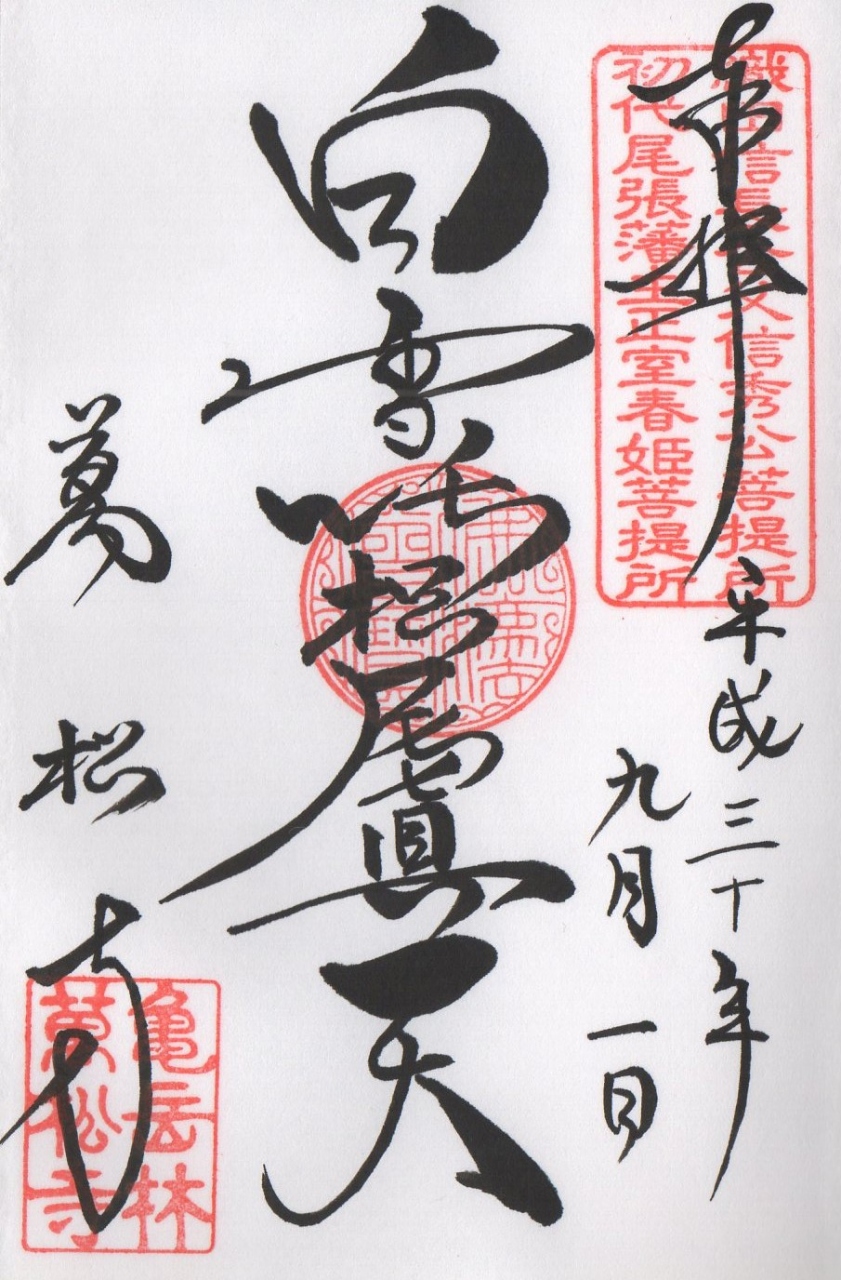 奉拝
織田信長公父信秀公菩提所
初代尾張藩主正室春姫菩提所
平成三十年
九月一日
白雪吒枳尼眞天
萬松寺
亀岳林
萬松寺